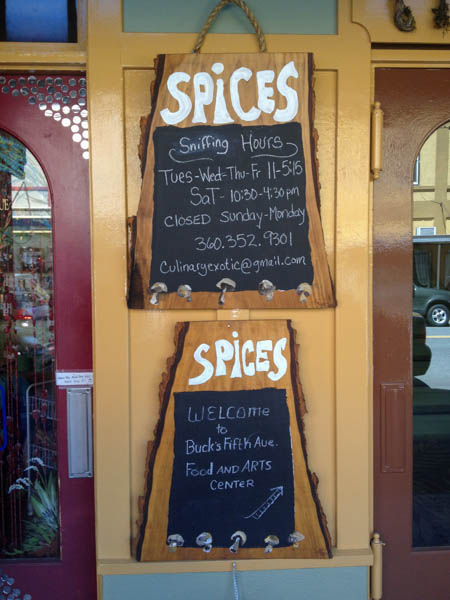 SPiCES
Sniffing Hours
Tues-Wed-Thu-Fr 11-5:15
SaT- 10:30-4:30pm
CLOSED Sunday-Monday
360.352.9301
Culinaryexotic@gmail.com
SPiCES
WELCOME
to
Buck's Fifth Ave.
Food AND ARTS
CENTER